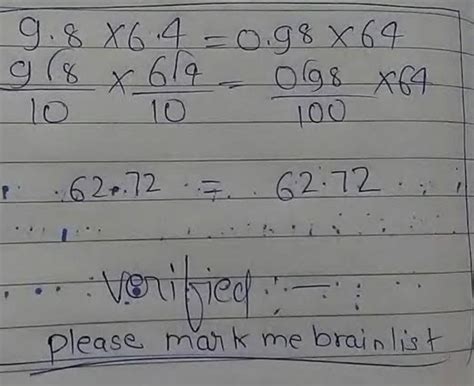 9.8 × 6.4 = 0.98 × 64
98/10 × 64/10 = 098/100 × 64
62.72 = 62.72
verified
please mark me brainlist